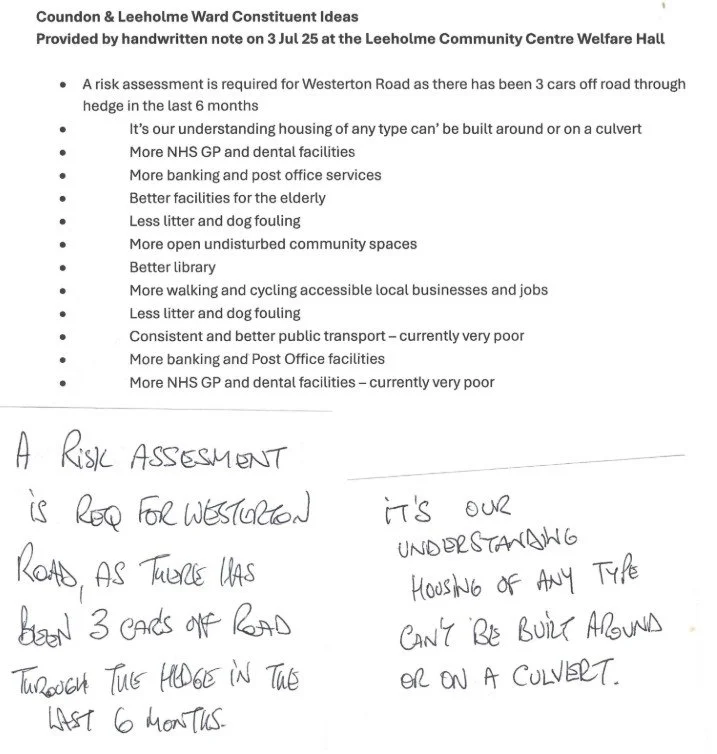 Coundon & Leeholme Ward Constituent Ideas
Provided by handwritten note on 3 Jul 25 at the Leeholme Community Centre Welfare Hall
• A risk assessment is required for Westerton Road as there has been 3 cars off road through
hedge in the last 6 months
• It's our understanding housing of any type can' be built around or on a culvert
• More NHS GP and dental facilities
• More banking and post office services
• Better facilities for the elderly
• Less litter and dog fouling
• More open undisturbed community spaces
• Better library
• More walking and cycling accessible local businesses and jobs
• Less litter and dog fouling
• Consistent and better public transport – currently very poor
• More banking and Post Office facilities
• More NHS GP and dental facilities – currently very poor
A RISK ASSESMENT
IS REQ FOR WESTERTON
ROAD, AS THERE HAS
BEEN 3 CARS OFF ROAD
THROUGH THE HEDGE IN THE
LAST 6 MONTHS.
IT'S OUR
UNDERSTANDING
HOUSING OF ANY TYPE
CAN'T BE BUILT AROUND
OR ON A CULVERT.